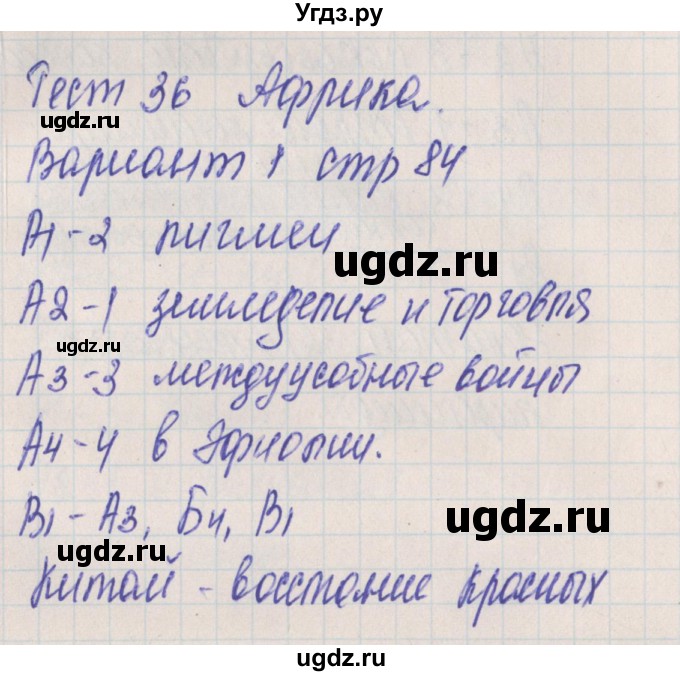 Угдз.ру
Тест 36 Африка.
ugdz.ru
Вариант 1 стр 84
А1-2 пигмеи
ugdz.ru
А2-1 земледелие и торговля
ugdz.ru
А3-3 междуусобные войны
А4-4 в Эфиопии.
В1-А3, Б4, В1
ugdz.ru
Китай - восстание красных
ugdz.ru